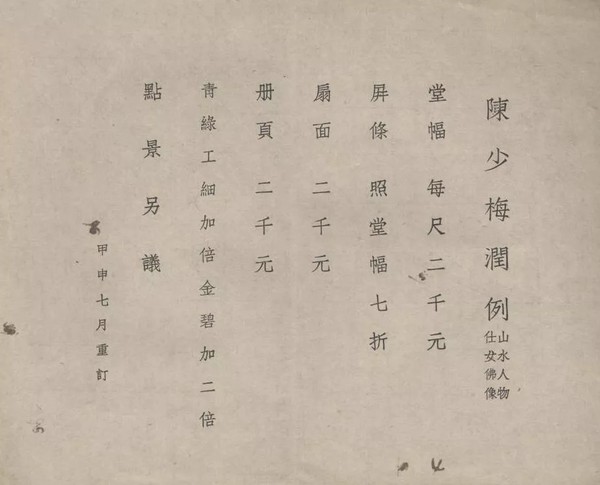 陳少梅潤例
山水人物
仕女佛像
堂幅 每尺二千元
屏條 照堂幅七折
扇面 二千元
册頁 二千元
靑綠工細加倍金碧加二倍
點景另議
甲申七月重訂